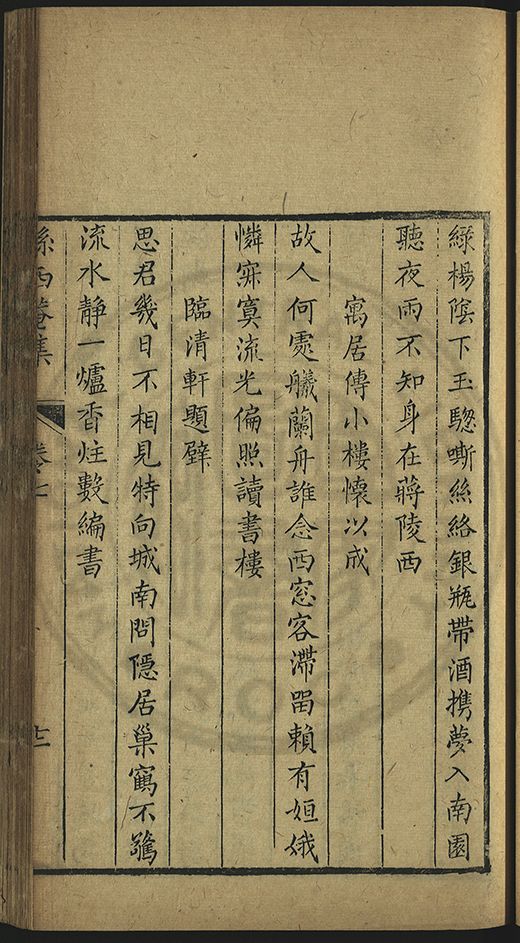 綠楊陰下玉驄嘶絲絡銀瓶帶酒携夢入南園
聽夜雨不知身在蔣陵西
寓居傳小樓懷以成
故人何處艤蘭舟誰念西窓客滯留賴有姮娥
憐寂寞流光偏照讀書樓
臨清軒題壁
思君幾日不相見特向城南問隱居巢窩不驚
流水靜一爐香炷數編書
西菴集
卷七
十二